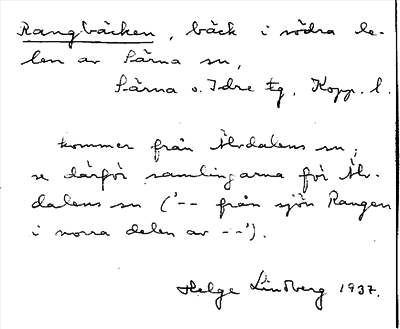 Rangbäcken, bäck i södra de-
len av Särna sn,
Särna o. Idre tg, Kopp. l.
kommer från Älvdalens sn;
se därför samlingarna för Älv-
dalens sn ('-- från sjön Rangen
i norra delen av --').
Helge Lindberg 1937.